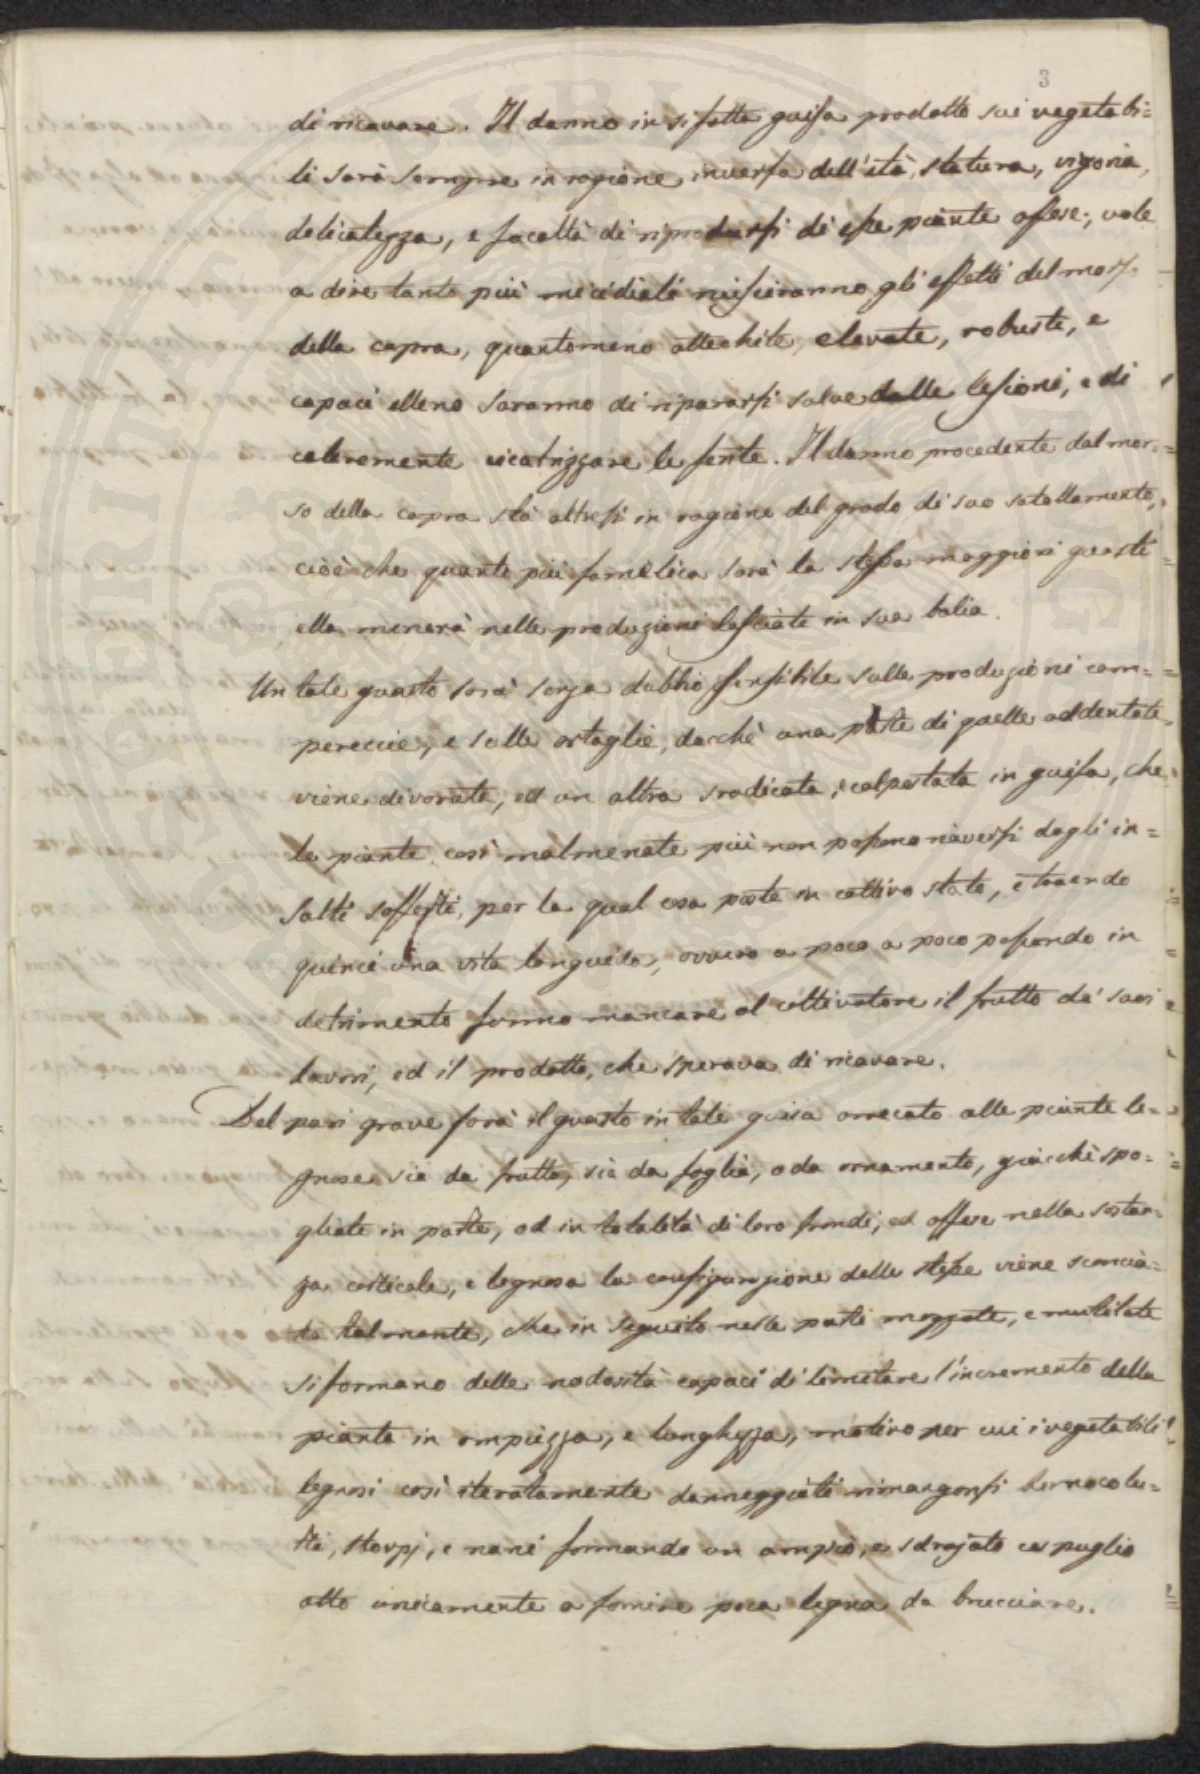 3
di ricavare. Il danno in sifatta guisa prodotto sui vegetabi=
li sarà sempre in ragione inversa dell'età, statura, vigoria,
delicatezza, e facoltà di riprodursi di esse piante offese; vale
a dire tanto più micidiali riusciranno gli effetti del morso
della capra, quantomeno attechite, elevate, robuste, e
capaci elleno saranno di ripararsi salve dalle lesioni, e di
celeremente cicatrizzare le ferite. Il danno procedente dal mor=
so della capra stà altresi in ragione del grado di suo satollamento,
cioè che quanto più famelica sarà la stessa maggiori guasti
ella menerà nelle produzioni lasciate in sua balia.
Un tale guasto sarà senza dubbio sensibile sulle produzioni cam=
pereccie, e sulle ortaglie, dacchè una parte di quelle addentate
viene divorata, ed un altra sradicata, e calpestata in guisa, che
le piante così malmenate più non possono riaversi dagli in=
sulti sofferti, per la qual cosa poste in cattivo stato, e traendo
quinci una vita languida, ovvero a poco a poco passando in
detrimento fanno mancare al coltivatore il frutto de' suoi
lavori, ed il prodotto, che sperava di ricavare.
Del pari grave sarà il guasto in tale guisa arrecato alle piante le=
gnose sia da frutto, sia da foglia, o da ornamento, giacchè spo=
gliate in parte, od in totalità di loro frondi, ed offese nella sostan=
za corticale, e legnosa la configurazione delle stesse viene sconcia=
ta talmente, che in seguito nelle parti mozzate, e mutilate
si formano delle nodosità capaci di limitare l'incremento della
pianta in ampiezza, e lunghezza, motivo per cui i vegetabili
legnosi così iteratamente danneggiati rimangonsi bernocolu=
ti, storpj, e nani formando un ampio, e sdrajato cespuglio
atto unicamente a fornire poca legna da brucciare.